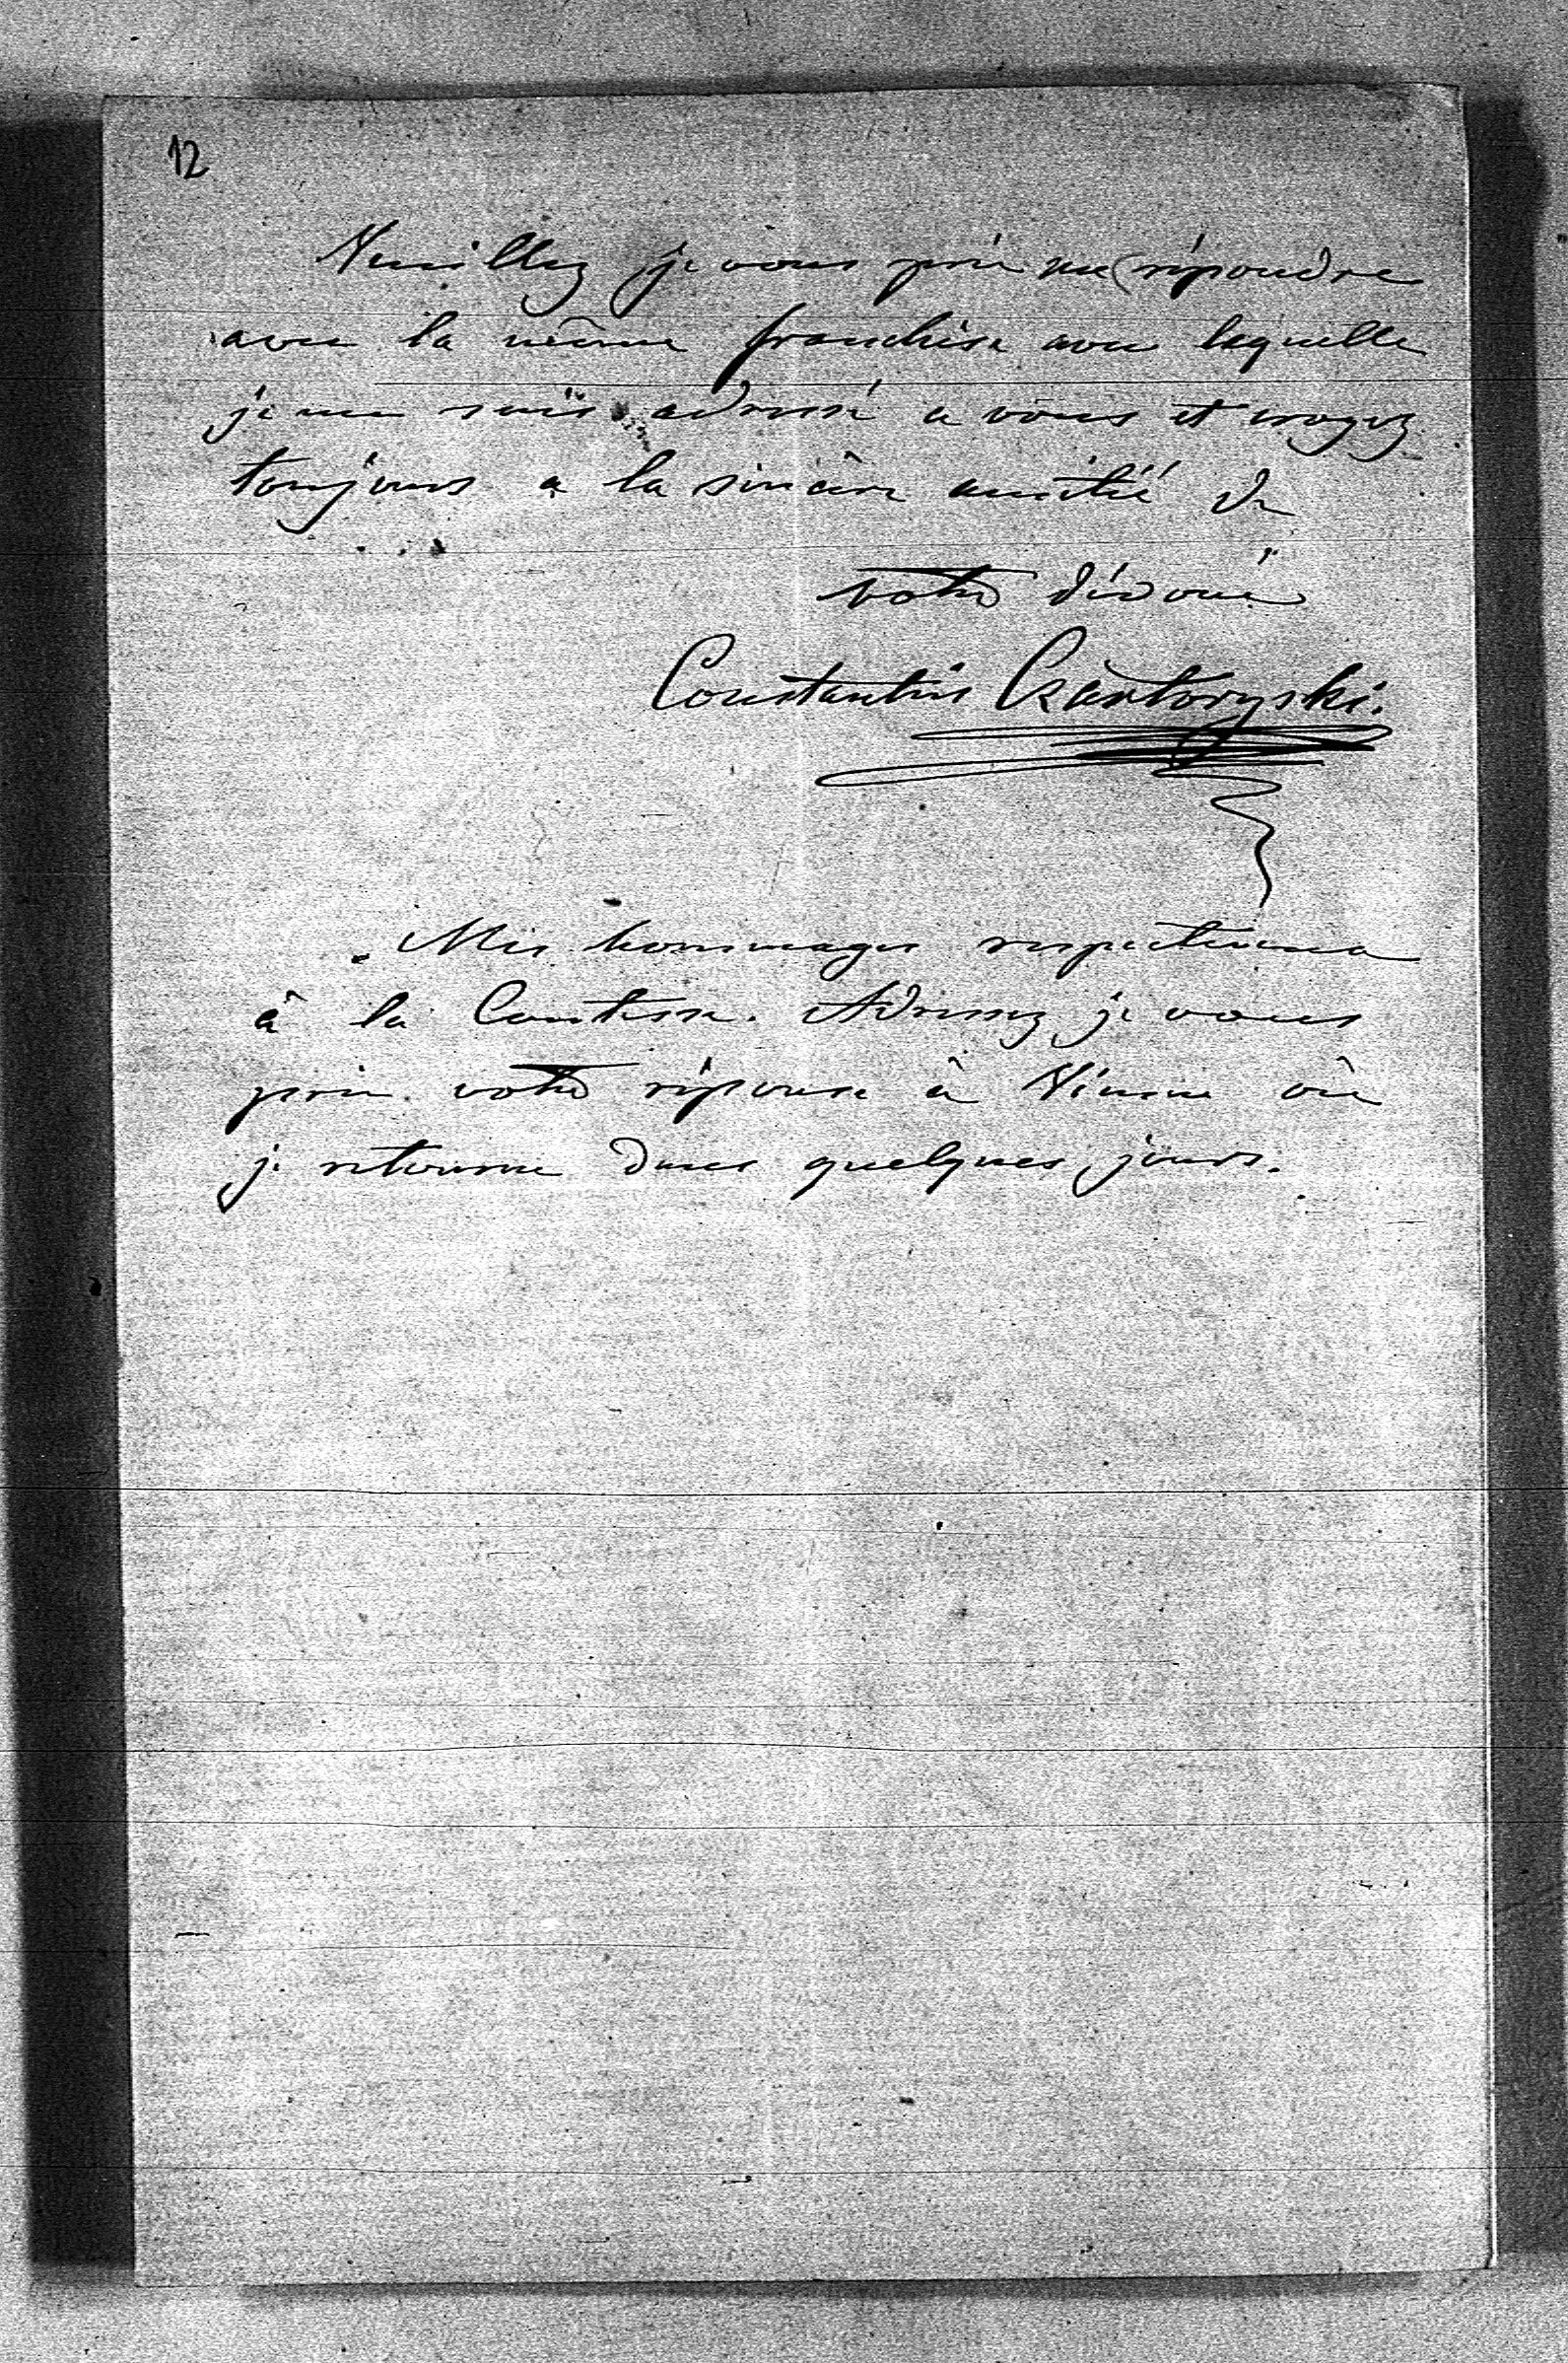 12
Veuillez je vous prie me répondre
avec la même franchise avec laquelle
je me suis adressé a vous et croyez
toujours a la sincère amitié de
votre dévoué
Constantin Czartoryski.
Mes hommages respectueux
à la Comtesse. Adressez je vous
prie votre réponse à Vienne où
je retourne dans quelques jours.